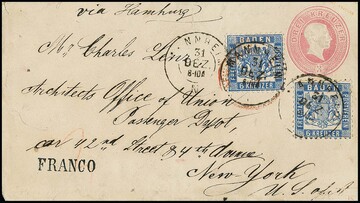 via Hamburg
Mr Charles Lenz
Architects Office of Union
Passenger Depot,
cor 42nd Street & 4th Avenue
New-York
U.S. of
FRANCO
31
DEZ
BADEN
6 KREUZER
BADEN
6 KREUZER
DREI KREUZER